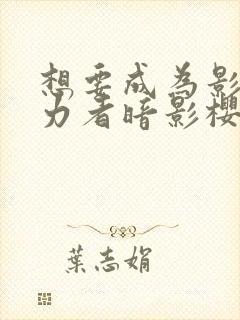 想要成为影
力者暗影樱
葉志娟